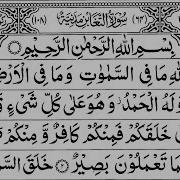 (١٠٨) سُوْرَةُ التَّغَابُنِ مَدَنِيَّةٌ (٦٤)
بِسْمِ اللّٰهِ الرَّحْمٰنِ الرَّحِيْمِ
لِلّٰهِ مَا فِي السَّمٰوٰتِ وَمَا فِي الْاَرْضِ
وَلَهُ الْحَمْدُ وَهُوَ عَلٰى كُلِّ شَيْءٍ
خَلَقَكُمْ فَمِنْكُمْ كَافِرٌ وَّمِنْكُمْ
بِمَا تَعْمَلُوْنَ بَصِيْرٌ ۝ خَلَقَ